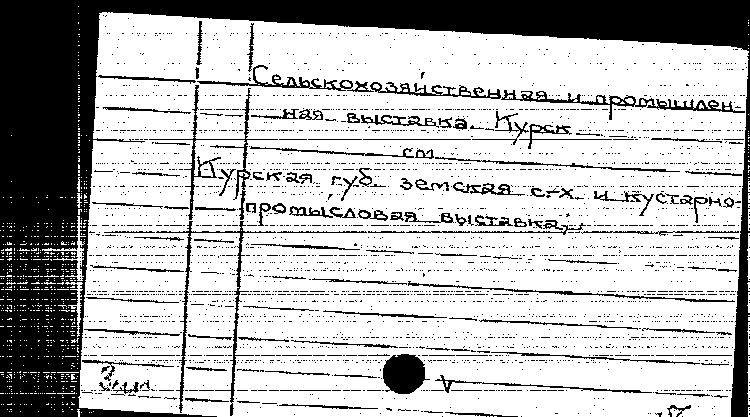 Сельскохозяйственная и промышлен-
ная выставка. Курск
см
Курская губ. земская с.-х. и кустарно-
промысловая выставка,